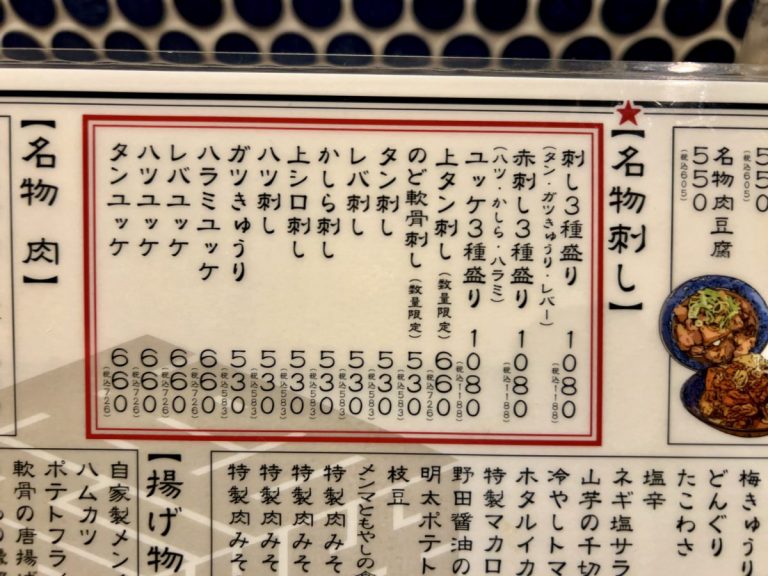 550
(税込605)
名物肉豆腐
550
(税込605)
【名物刺し】
刺し3種盛り 1080
(タン・ガツきゅうり・レバー) (税込1188)
赤刺し3種盛り 1080
(ハツ・かしら・ハラミ) (税込1188)
ユッケ3種盛り 1080
(税込1188)
上タン刺し(数量限定) 660
(税込726)
のど軟骨刺し(数量限定) 530
(税込583)
タン刺し 530
(税込583)
レバ刺し 530
(税込583)
かしら刺し 530
(税込583)
上シロ刺し 530
(税込583)
ハツ刺し 530
(税込583)
ガツきゅうり 530
(税込583)
ハラミユッケ 660
(税込726)
レバユッケ 660
(税込726)
ハツユッケ 660
(税込726)
タンユッケ 660
(税込726)
【名物 肉】
梅きゅうり
どんぐり
たこわさ
塩辛
ネギ塩サラ
山芋の千切
冷やしトマ
ホタルイカ
特製マカロ
野田醤油の
明太ポテト
枝豆
メンマともやしの
特製肉みそ
特製肉みそ
特製肉みそ
特製肉みそ
【揚げ物
自家製メン
ハムカツ
ポテトフライ
軟骨の唐揚げ